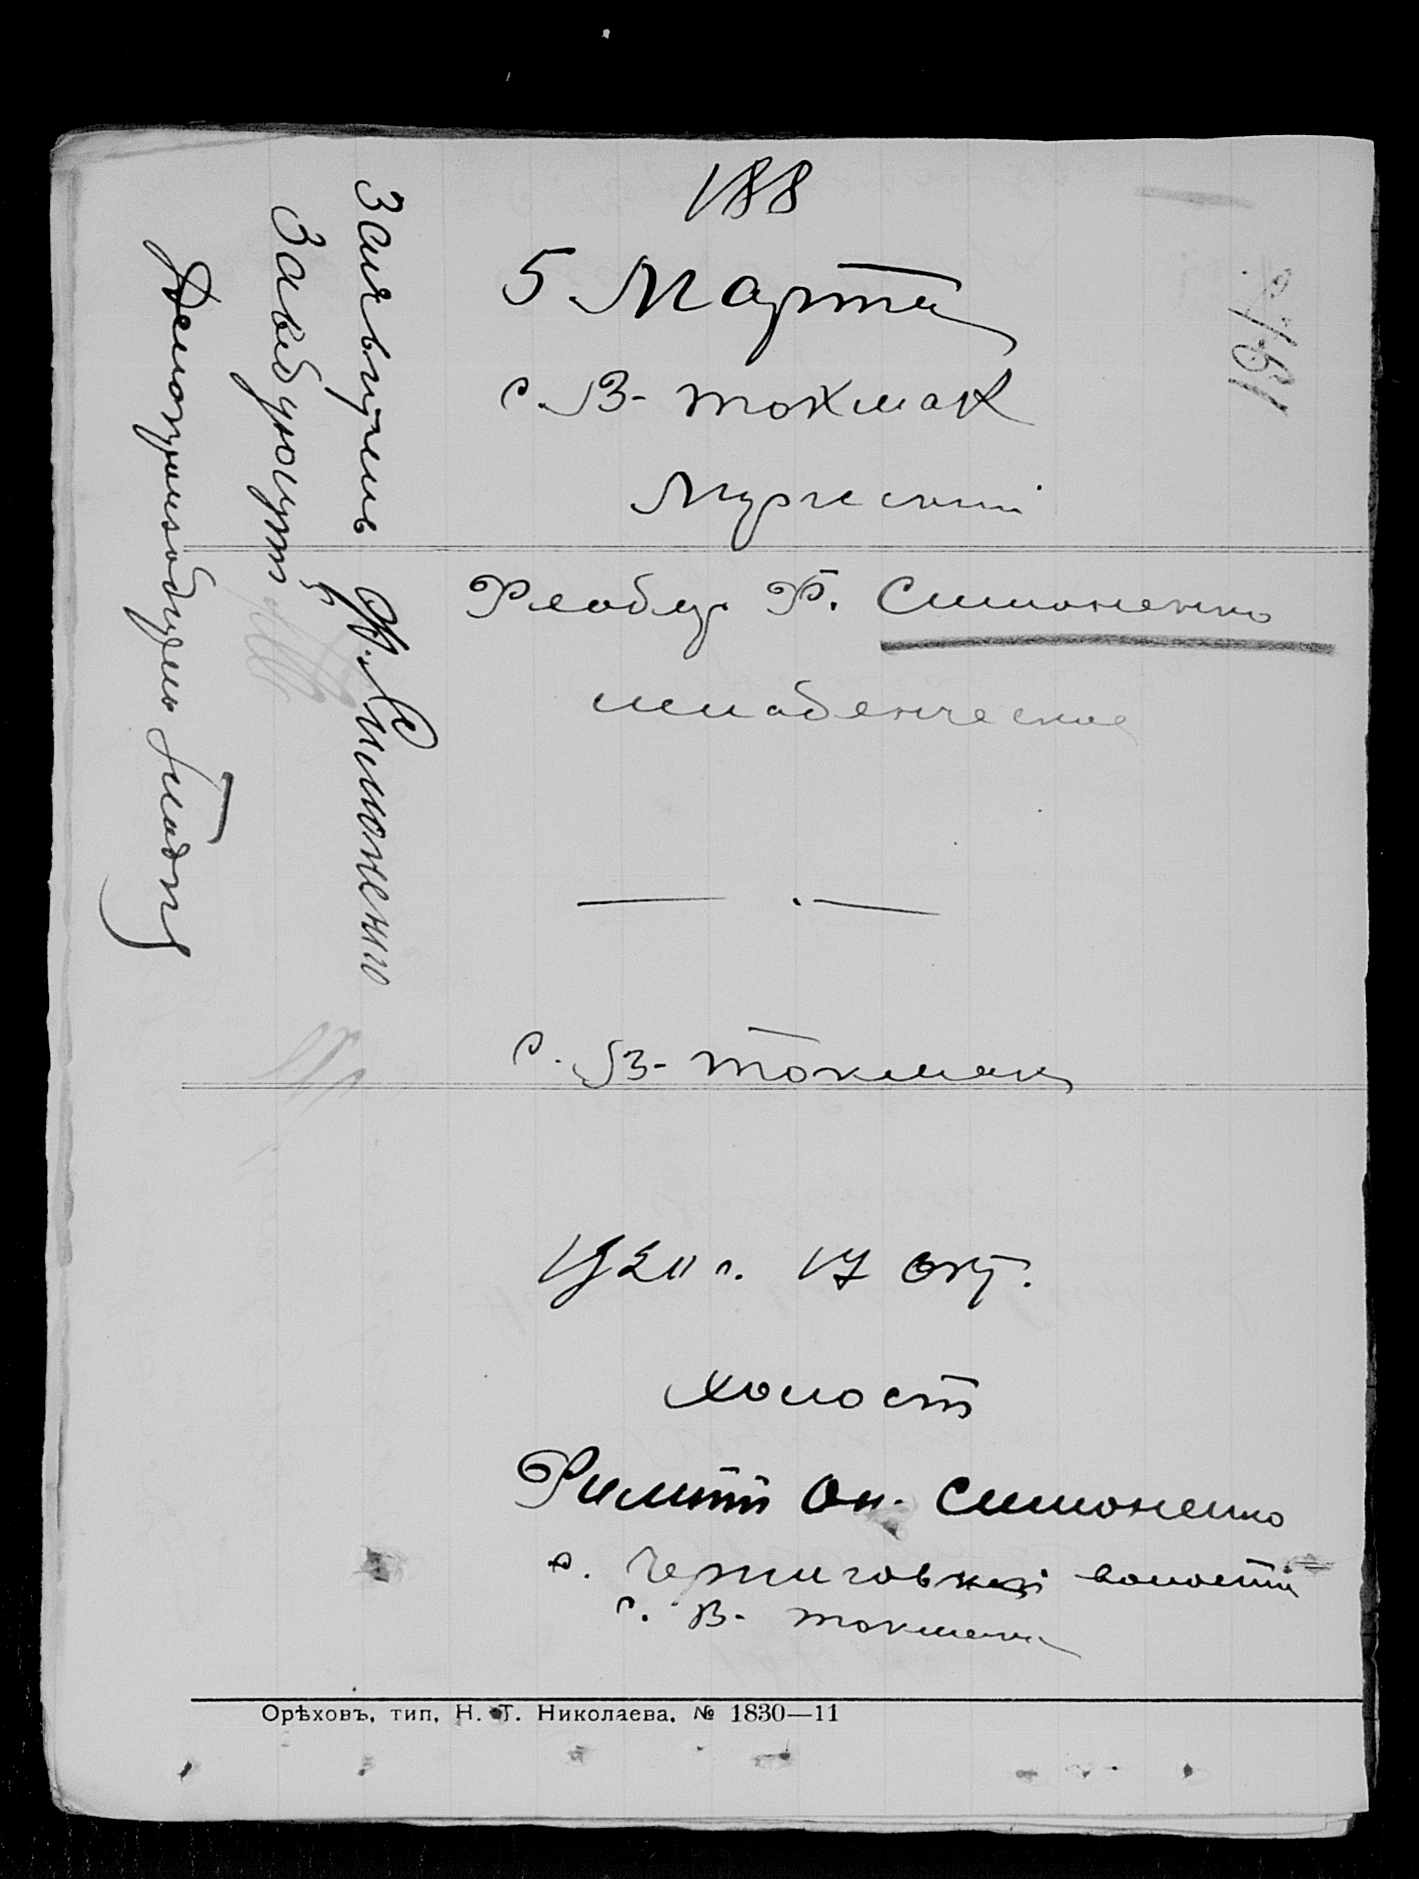 188
5 Марта
с. В- Токмак
Мужской
Федор Ф. Симоненко
младенческая
с. В- Токмак
1920 г. 17 окт.
холост
Филипп Он. Симоненко
с. Черниговской волости
с. В- Токмака
Заявитель Ф. Симоненко
Заведующий
Делопроизводитель
Орѣховъ, тип. Н. Т. Николаева. № 1830—11